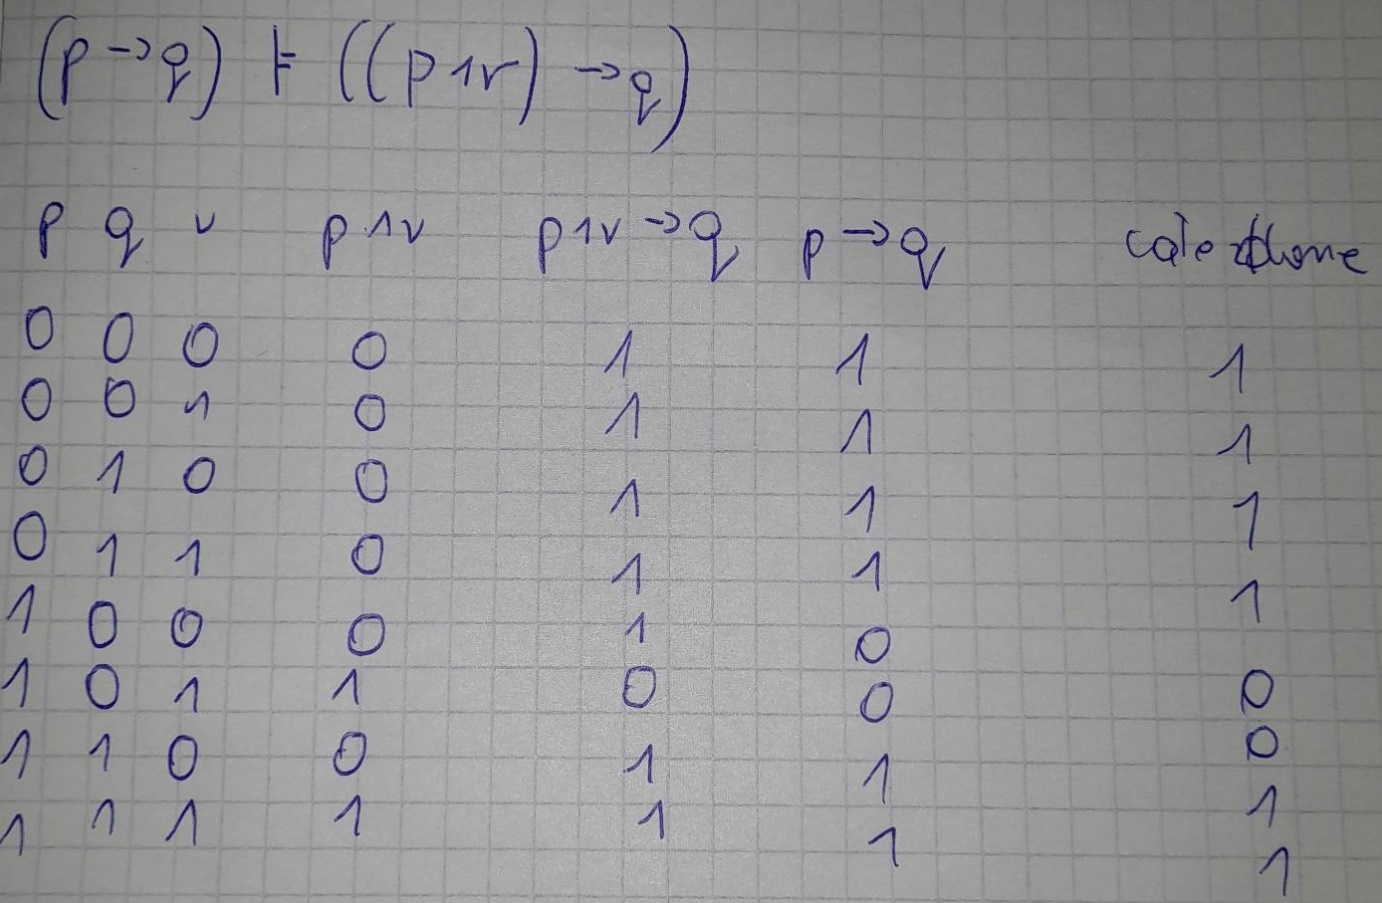 (p → q) ⊨ ((p ∧ r) → q)
p q r p ∧ r p ∧ r → q p → q całe
0 0 0 0 1 1 1
0 0 1 0 1 1 1
0 1 0 0 1 1 1
0 1 1 0 1 1 1
1 0 0 0 1 0 0
1 0 1 1 0 0 0
1 1 0 0 1 1 1
1 1 1 1 1 1 1